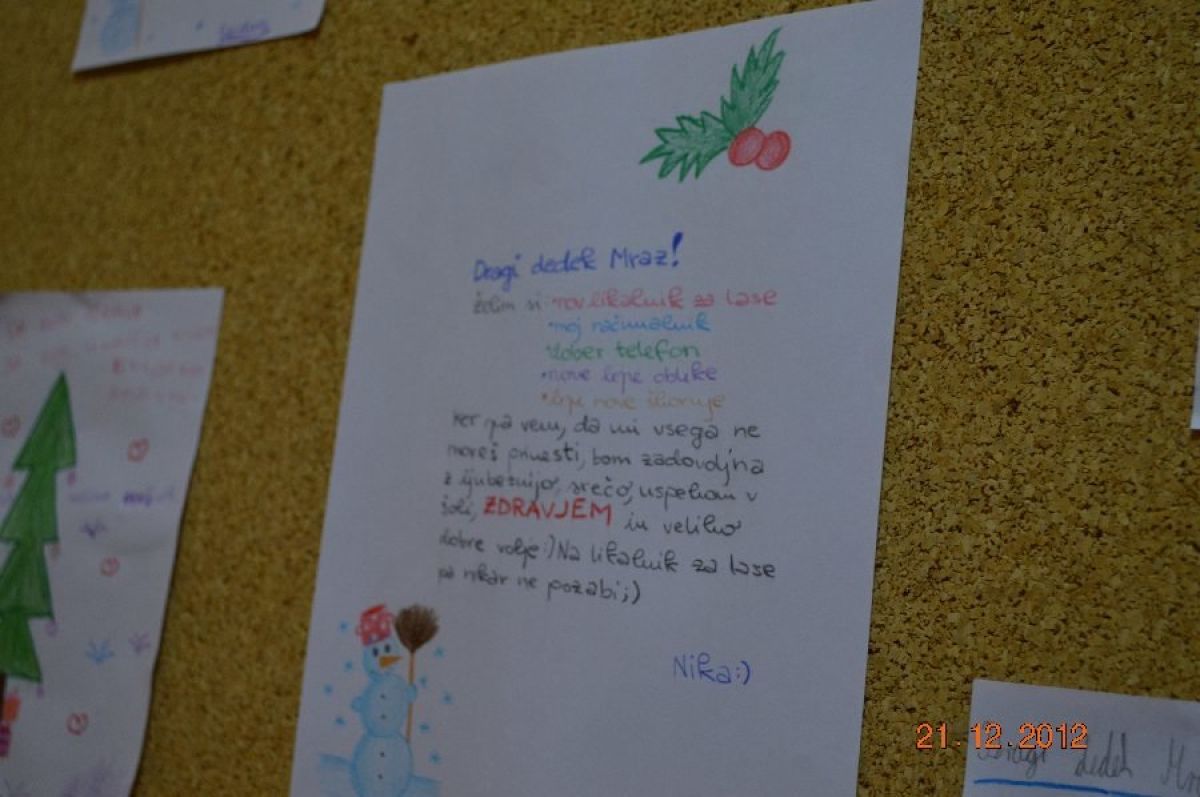 Dragi dedek Mraz!
Želim si: nov likalnik za lase
• moj računalnik
dober telefon
• nove lepe obleke
• lepe nove škornje
Ker pa vem, da mi vsega ne
moreš prinesti, bom zadovoljna
z ljubeznijo, srečo, uspehom v
šoli, ZDRAVJEM in veliko
dobre volje :) Na likalnik za lase
pa nikar ne pozabi ;)
Nika :)
21.12.2012
Dragi dedek